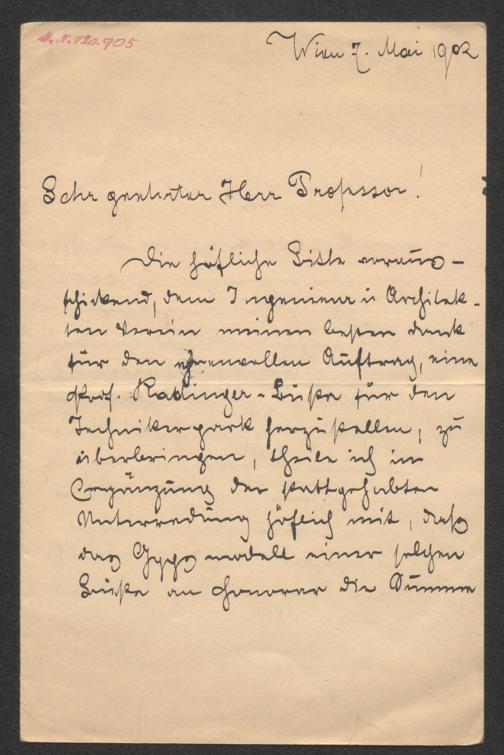 H.N. 120.905
Wien 7. Mai 1902
Sehr geehrter Herr Professor!
Die höfliche Bitte voraus-
schickend, dem Ingenieur u Architek-
ten Verein meinen besten Dank
für den ehrenvollen Auftrag, eine
Prof. Radinger-Büste für den
Technikerpark herzustellen, zu
überbringen, theile ich in
Ergänzung der stattgehabten
Unterredung höflich mit, daß
das Gypsmodell einer solchen
Büste an Honorar die Summe